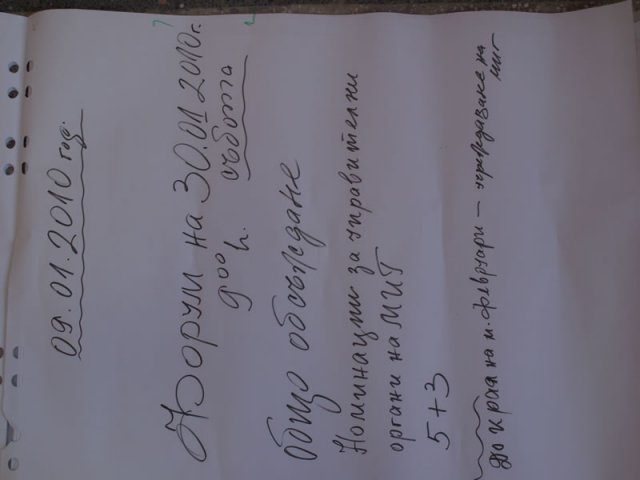 09.01.2010 год.
Форум на 30.01.2010 г.
9⁰⁰ h. събота
Общо обсъждане
Номинации за управителни
органи на МИГ
5+3
До края на м. февруари – учредяване на
МИГ